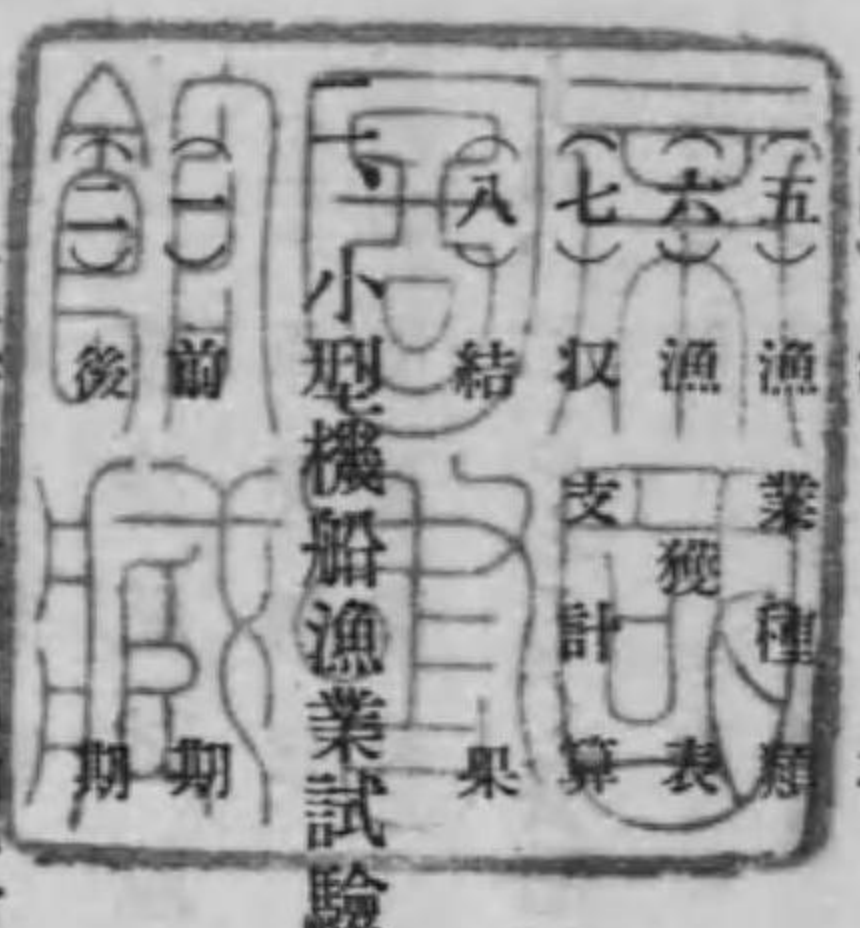 (五)漁業種類
(六)漁獲表
(七)収支計算
(八)結果
二、小型機船漁業試驗
(一)前期
(二)後期
帝國
圖書
館藏